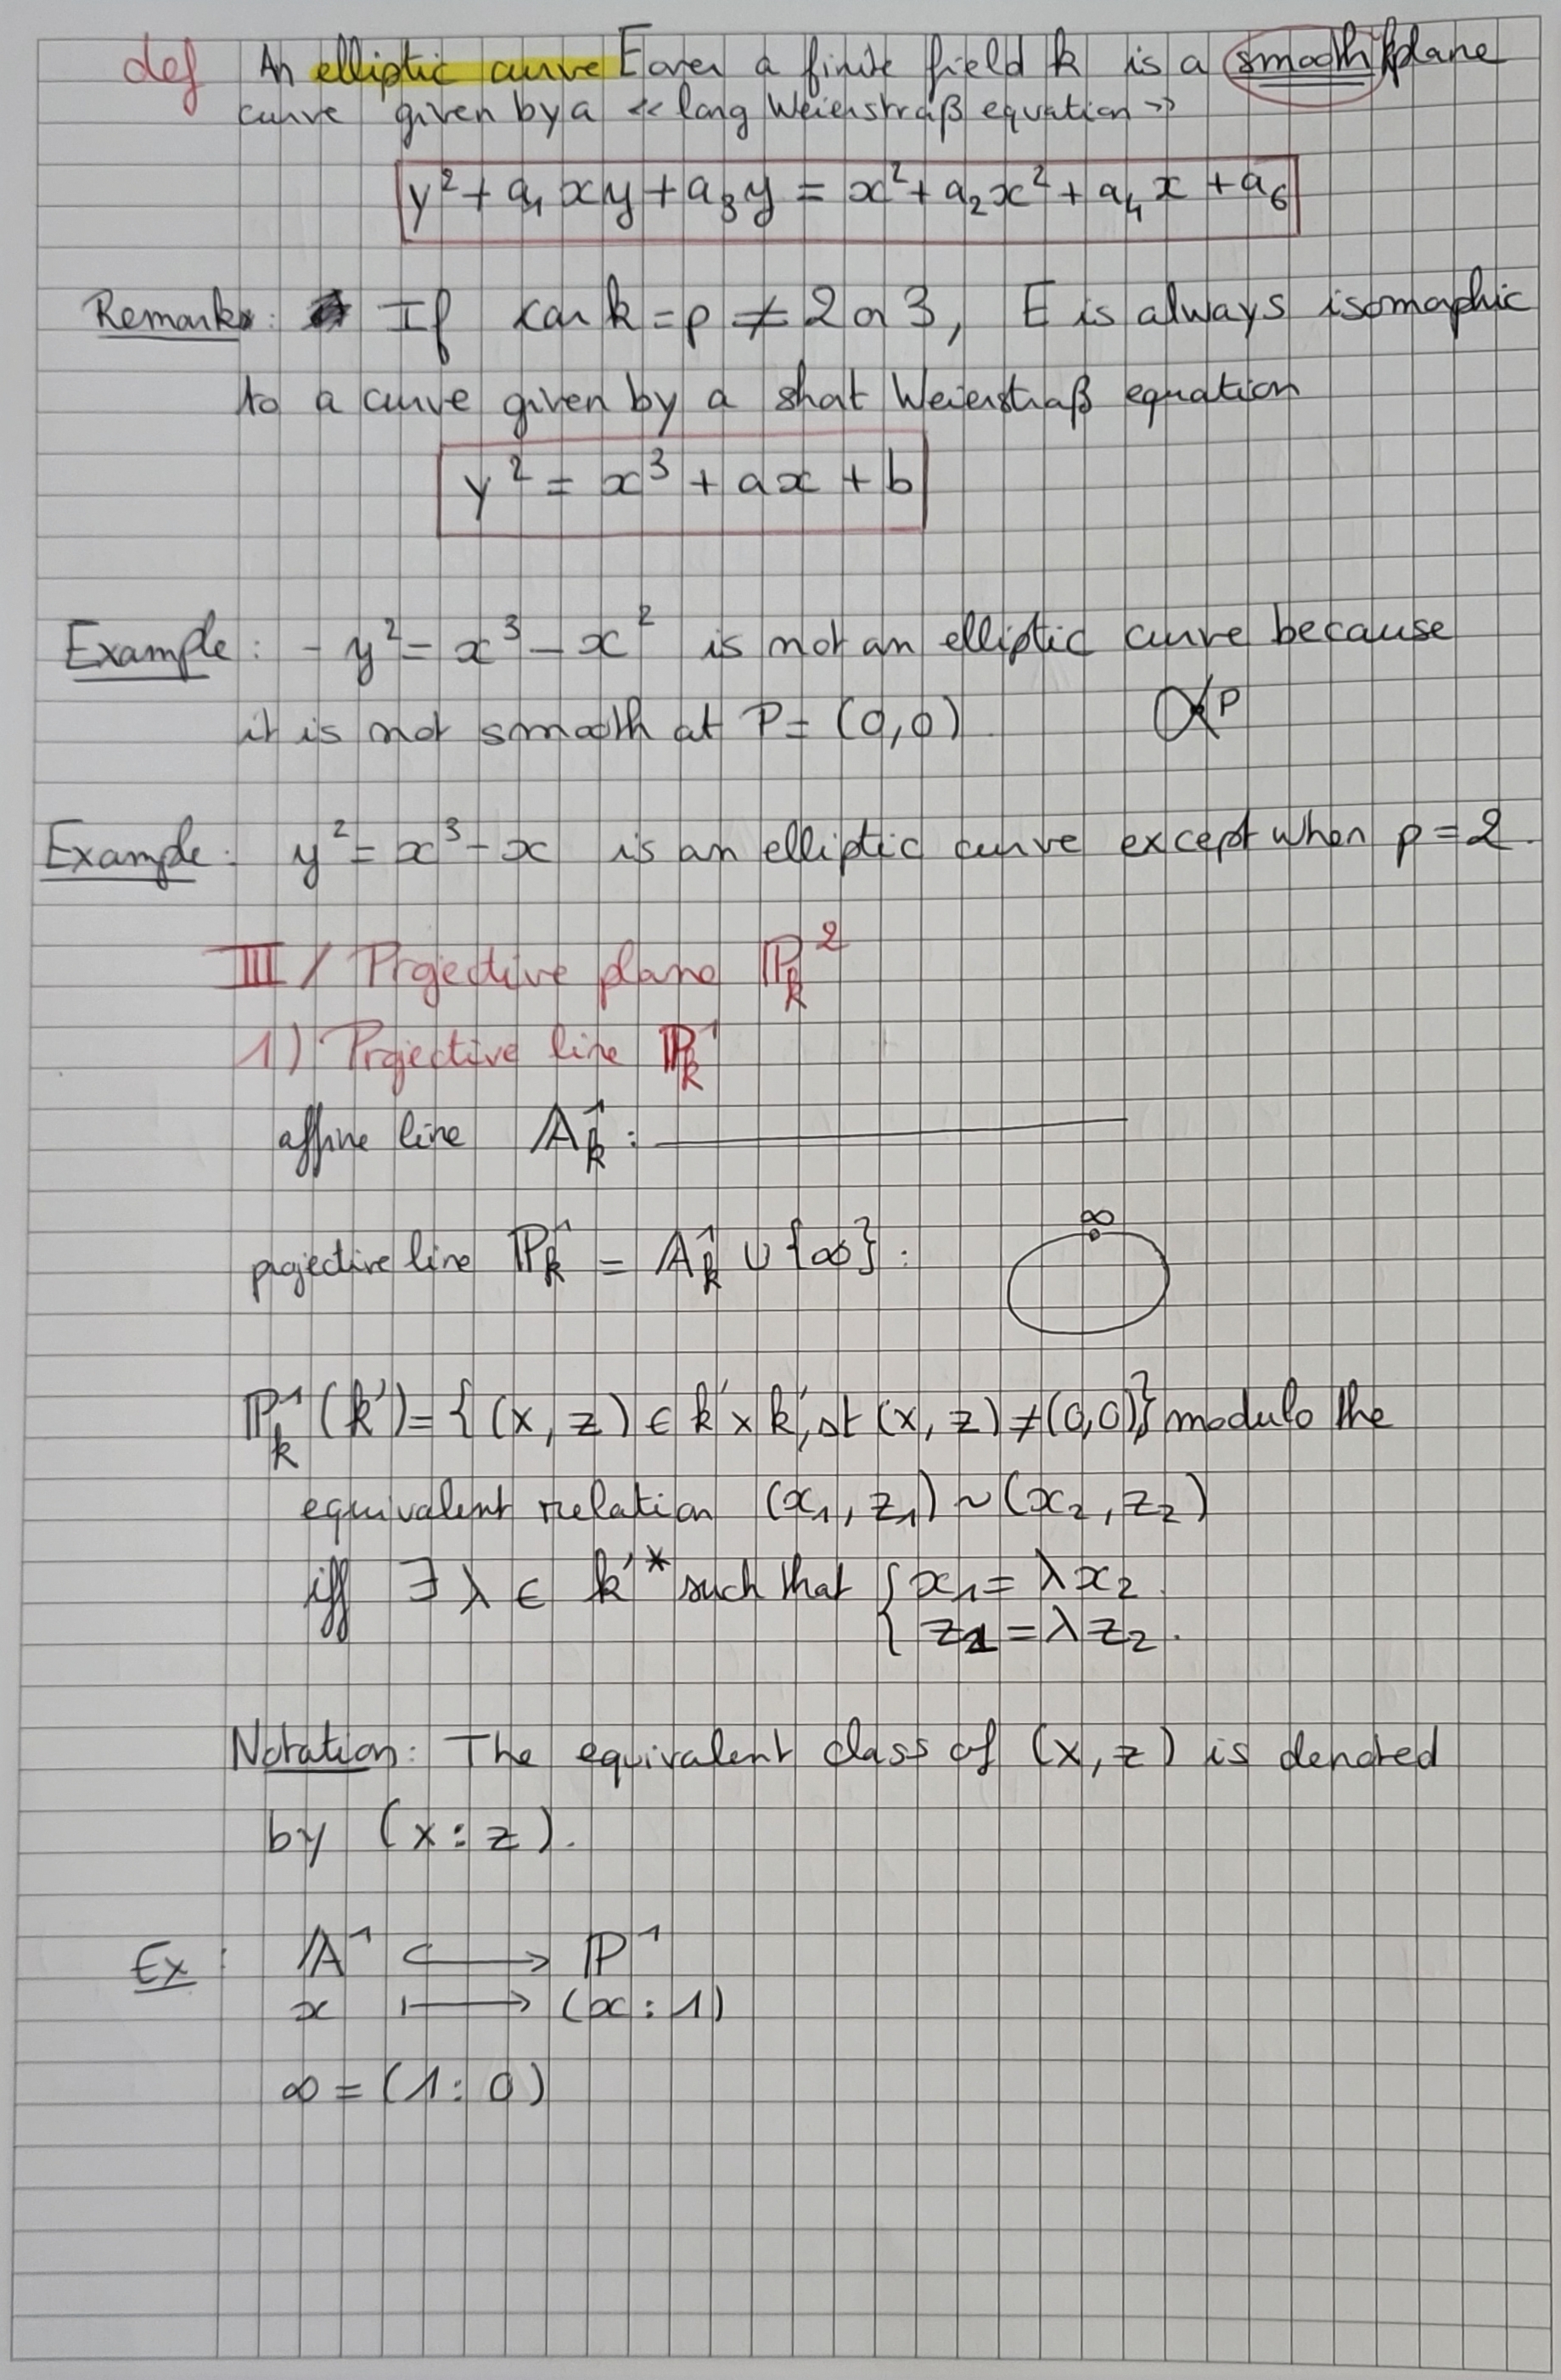 def An elliptic curve E over a finite field k is a smooth plane
curve given by a « long Weierstraß equation »
y² + a₁xy + a₃y = x² + a₂x² + a₄x + a₆
Remark: If car k = p ≠ 2 or 3, E is always isomorphic
to a curve given by a short Weierstraß equation
y² = x³ + ax + b
Example: - y² = x³ - x² is not an elliptic curve because
it is not smooth at P = (0,0).
P
Example: y² = x³ - x is an elliptic curve except when p = 2.
III / Projective plane ℙ²ₖ
1) Projective line ℙ¹ₖ
affine line 𝔸¹ₖ :
∞
projective line ℙ¹ₖ = 𝔸¹ₖ ∪ {∞} :
ℙ¹ₖ(k') = {(x, z) ∈ k' × k', st (x, z) ≠ (0,0)} modulo the
equivalent relation (x₁, z₁) ~ (x₂, z₂)
iff ∃ λ ∈ k'* such that { x₁ = λx₂.
z₁ = λz₂.
Notation: The equivalent class of (x, z) is denoted
by (x : z).
Ex : 𝔸¹ ↪ ℙ¹
x ↦ (x : 1)
∞ = (1 : 0)